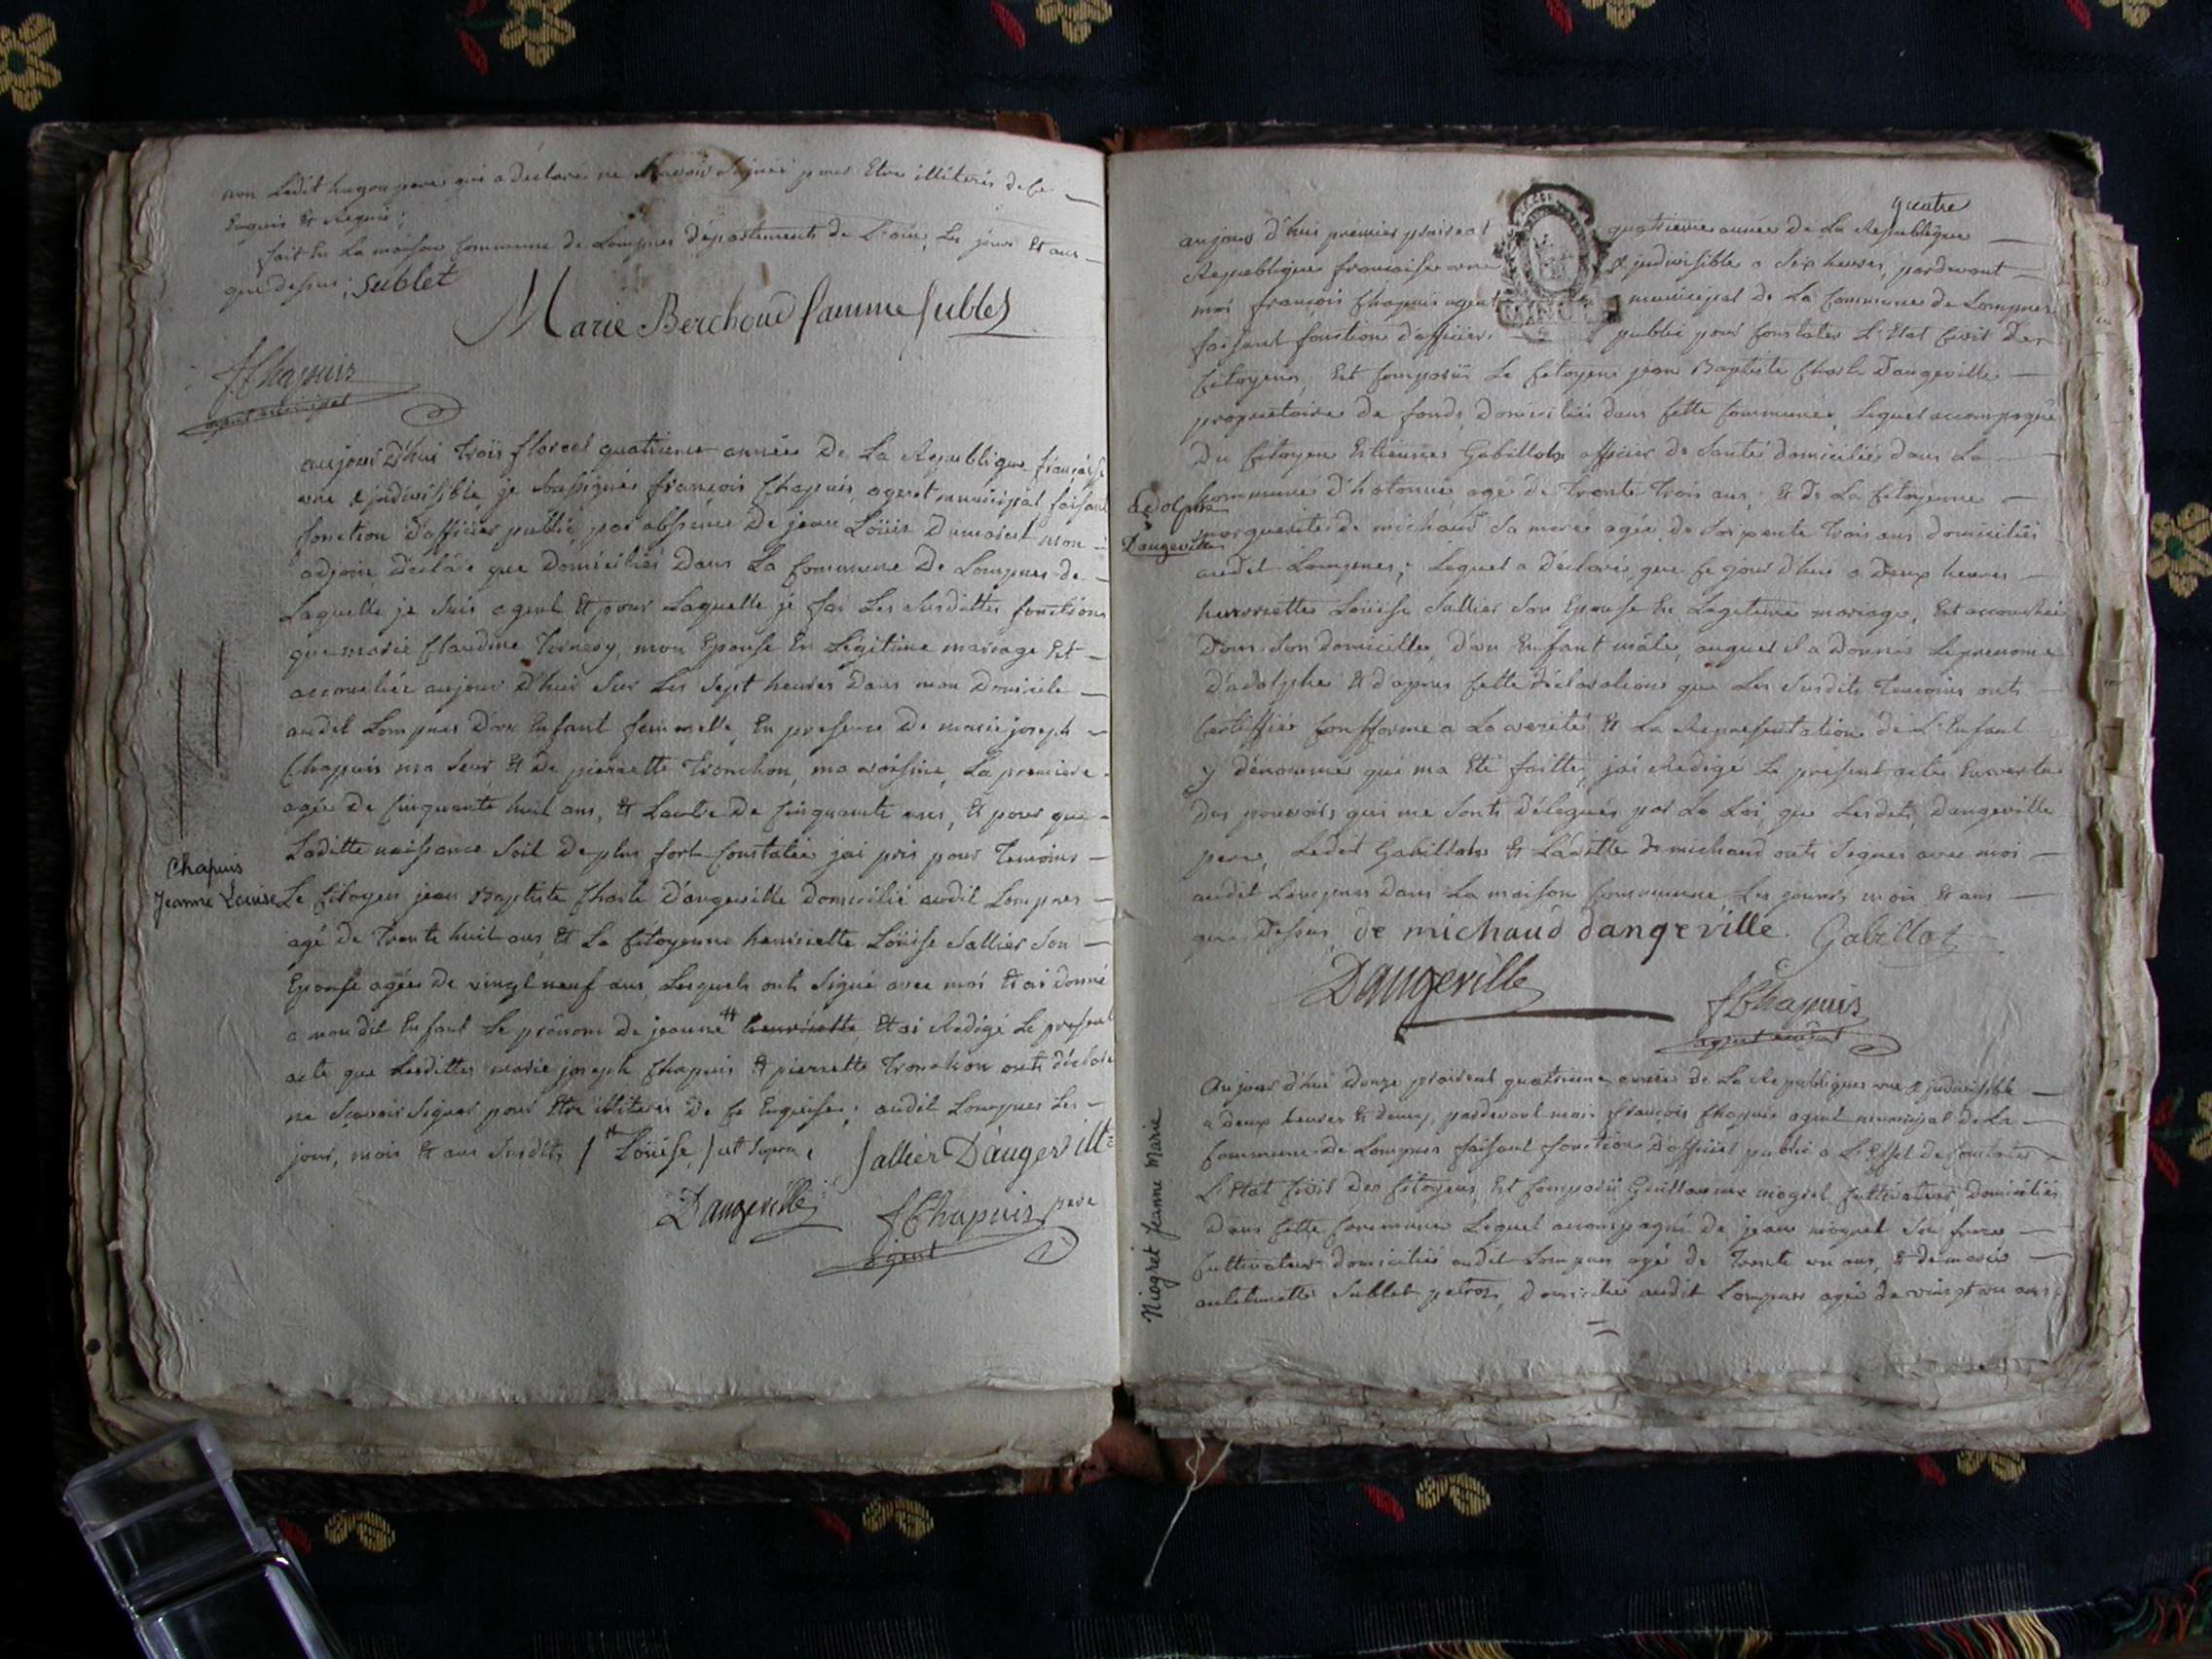 non Ledit hugon pere qui a déclaré ne Scavoir Signer pour Etre illiterés de ce
Enquis & Requis;
fait En La maison Commune de Lompnes département de L'ain, Les jours Et ans
que dessus; Sublet
Marie Berchoud famme Sublet
f Chapuis
agent municipal
aujour d'hui trois floreal quatrieme année De La Republique francaise
une & indivisible, je Soussigné francois Chapuis, agent municipal faisant
fonction d'officier public, par absence De jean Loüis Dumarest mon
adjoin déclare que domiciliés Dans La Commune De Lompnes de
Laquelle je Suis agent Et pour Laquelle je fai Les Susdittes fonctions
que marie Claudine mon Epouse En Légitime mariage Est
accouchée aujour d'hui Sur Les Sept heures Dans mon Domicile
audit Lompnes D'un Enfant femmelle, En presence De marie joseph
Chapuis ma Seur Et de pierrette Tronchon, ma voisine, La premiere
agée de Cinquante huit ans, & Lautre de Cinquante ans, & pour que
Laditte naissance Soit De plus fort Constatée jai pris pour Temoins
Chapuis
Jeanne Louise
Le Citoyen jean Baptiste Charle D'angeville Domicilié audit Lompnes
agé de Trente huit ans, & La Citoyenne henriette Loüise Sallier Son
Epouse agée De vingt neuf ans, Lesquels onts Signé avec moi & ai donné
a mon dit Enfant Le prénom de jeanne # henriette & ai Redigé Le present
acte que Lesdittes marie joseph Chapuis & pierrette Tronchon onts déclaré
ne Scavoir Signer pour Etre illiteris De Ce Enquises; audit Lompnes Les
jour, mois & ans Susdits / # Loüise / Sallier D'angeville
Dangeville f Chapuis pere
agent
quatre
aujour d'hui premier praireal quatrieme année De La Republique
Republique francaise une & indivisible a Six heures, pardevant
moi françois Chapuis agent municipal de La Commune de Lompnes
faisant fonction d'officier public pour Constater L'Etat Civil Des
Citoyens, Est Comparüs Le Citoyen jean Baptiste Charle Dangeville
proprietaire de fonds, domiciliés dans Cette Commune, Lequel accompagné
Du Citoyen Estiennes Gabillot officier de Santé domiciliés dans La
Commune d'hotonne agé de Trente Trois ans; & de La Citoyenne
Adolphe
Dangeville
marguerite de michaud Sa mere agée de Soixente Trois ans domiciliés
audit Lompnes; Lequel a déclaré que Ce jour d'hui a Deux heures
henrriette Loüise Sallier Son Epouse En Legitime mariage, Est accouchée
Dans Son domicille, D'un Enfant mâle, auquel il a Donnés Le prenom
D'adolphe & d'apres Cette déclaration que Les Susdits Temoins onts
Certiffiés Conforme a La verité & La Representation de L'Enfant
y dénommé qui ma Eté faitte, jai Redigé Le present acte En vertu
Des pouvoirs qui me Sonts délegués par La Loi, que Lesdits Dangeville
pere, Ledit Gabillot & Laditte de michaud onts Signés avec moi
audit Lompnes Dans La maison Commune Les jours, mois & ans
que Dessus, de michaud dangeville. Gabillot
Dangeville
f Chapuis
agent
Au jour d'hui Douze prairéal quatrieme année de La Republiques une & indivisible
a deux heures & demy, pardevant moi françois Chapuis agent municipal de La
Commune de Lompnes faisant fonction d'officier public a L'Effet de Constater
L'Etat Civil Des Citoyens Est Comparüs Guillaume niogret Cultivateur Domicilié
Dans Cette Commune Lequel accompagné De jean niogret Son frere
Cultivateur domicilié audit Lompnes agé de Trente un ans, & de marie
antoinette Sublet domicilié audit Lompnes agée de vingt un ans
Niogret Jeanne Marie